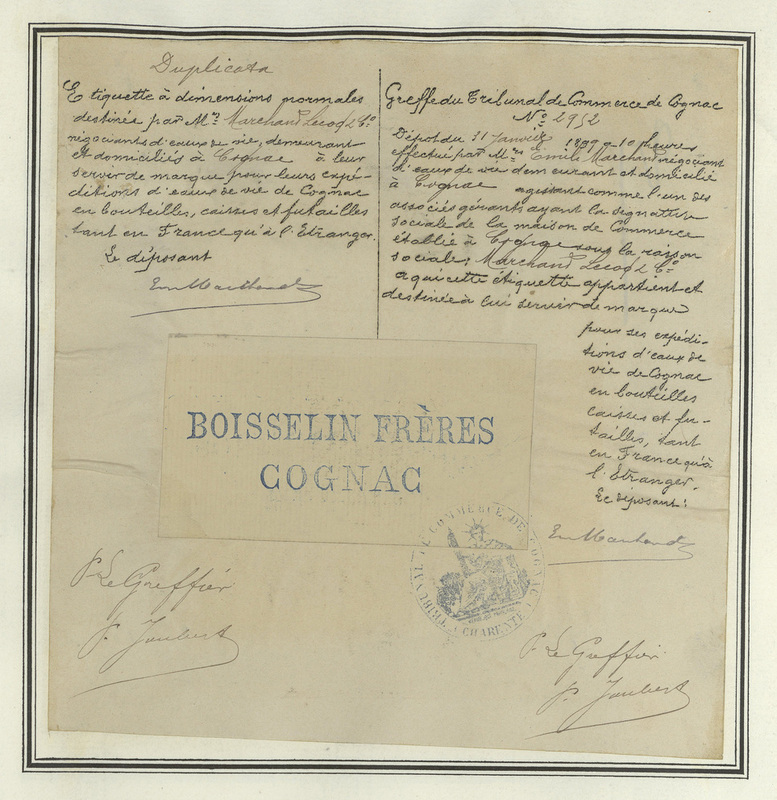 Duplicata
Etiquette à dimensions normales
destinée par Mrs Marchand Lecoq & Cie
négociants d'eaux de vie, demeurant
et domiciliés à Cognac à leur
servir de marque pour leurs expé-
ditions d'eaux de vie de Cognac
en bouteilles, caisses et futailles
tant en France qu'à l'Etranger.
Le déposant
Em Marchand
Greffe du Tribunal de Commerce de Cognac
No 2952
Dépôt du 11 Janvier 1889 - 10 heures
effectué par Mrs Emile Marchand négociant
d'eaux de vie demeurant et domicilié
à Cognac agissant comme l'un des
associés gérants ayant la signature
sociale de la maison de Commerce
établie à Cognac sous la raison
sociale: Marchand Lecoq & Cie
a qui cette étiquette appartient et
destinée à lui servir de marque
pour ses expédi-
tions d'eaux de
vie de Cognac
en bouteilles
caisses et fu-
tailles, tant
en France qu'à
l'Etranger.
Le déposant:
Em Marchand
BOISSELIN FRÈRES
COGNAC
TRIBUNAL DE COMMERCE DE COGNAC
CHARENTE
P. Le Greffier
P. Joubert
P. Le Greffier
P. Joubert